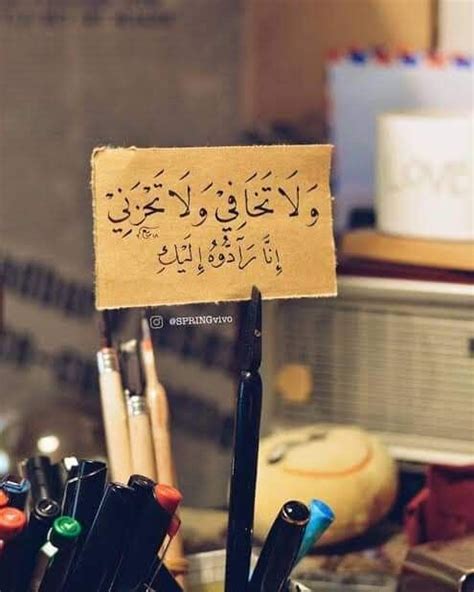 وَلَا تَخَافِيْ وَلَا تَحْزَنِيْ
إِنَّا رَآدُّوْهُ إِلَيْكِ
@SPRINGvivo
LOVE